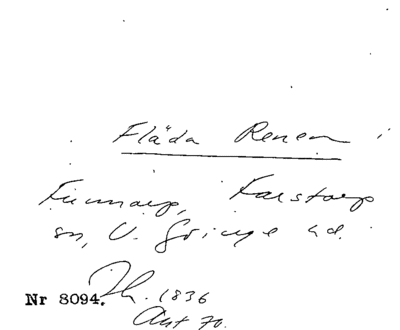 Fläda Renen
Finnarp, Farstorp
sn, V. Göinge hd.
Nr 8094. Th. 1836
Ant 70.